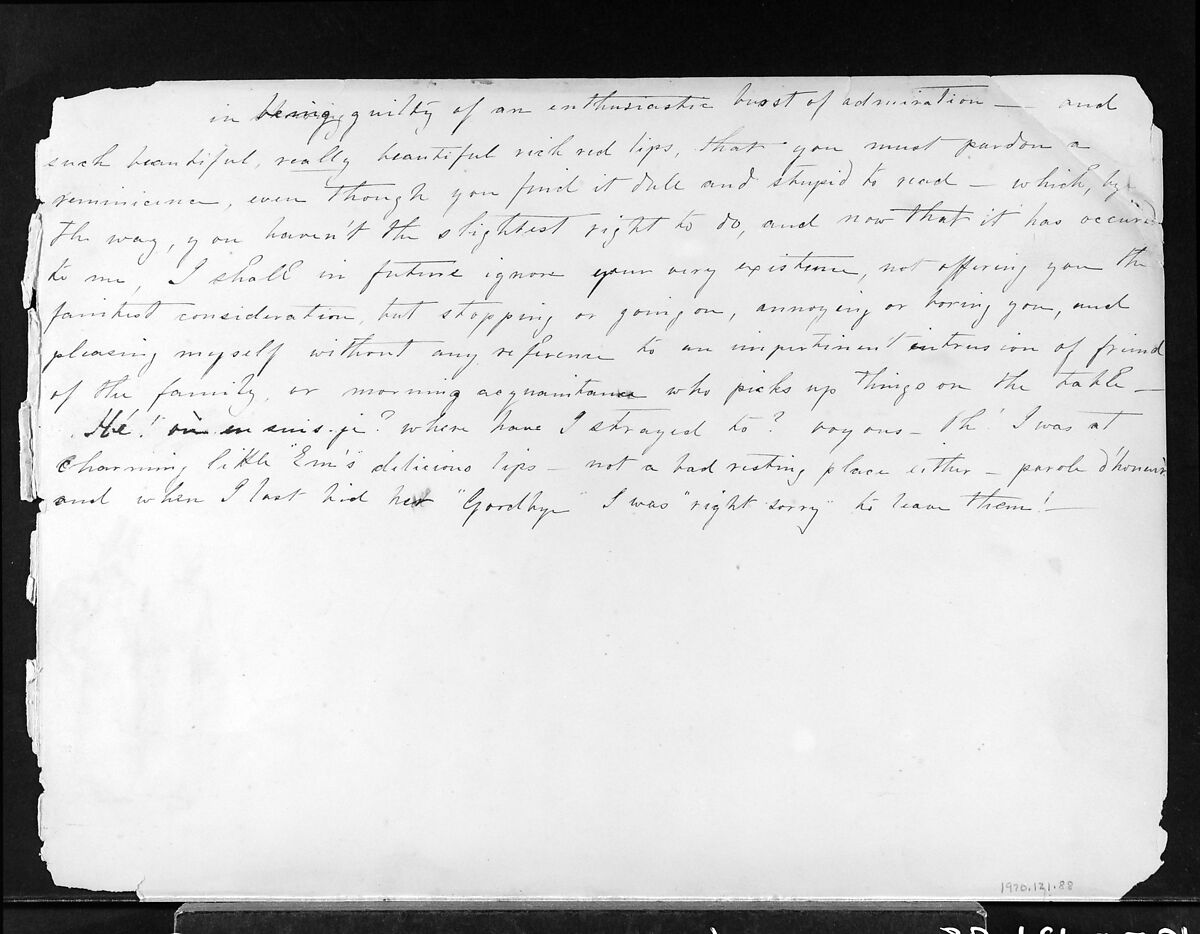 in being guilty of an enthusiastic burst of admiration — and
such beautiful, really beautiful rich red lips, that you must pardon a
reminicence, even though you find it dull and stupid to read — which, by
the way, you haven't the slightest right to do, and now that it has occured
to me, I shall in future ignore your very existence, not offering you the
faintest consideration, but stopping or going on, annoying or boring you, and
pleasing myself without any reference to an impertinent intrusion of friend
of the family, or morning acquaintance who picks up things on the table —
Hé! où en suis-je? where have I strayed to? voyons — Oh! I was at
charming little "Em's" delicious lips — not a bad resting place either — parole d'honeur
and when I last bid her "Goodbye" I was "right sorry" to leave them! —
1970.121.88